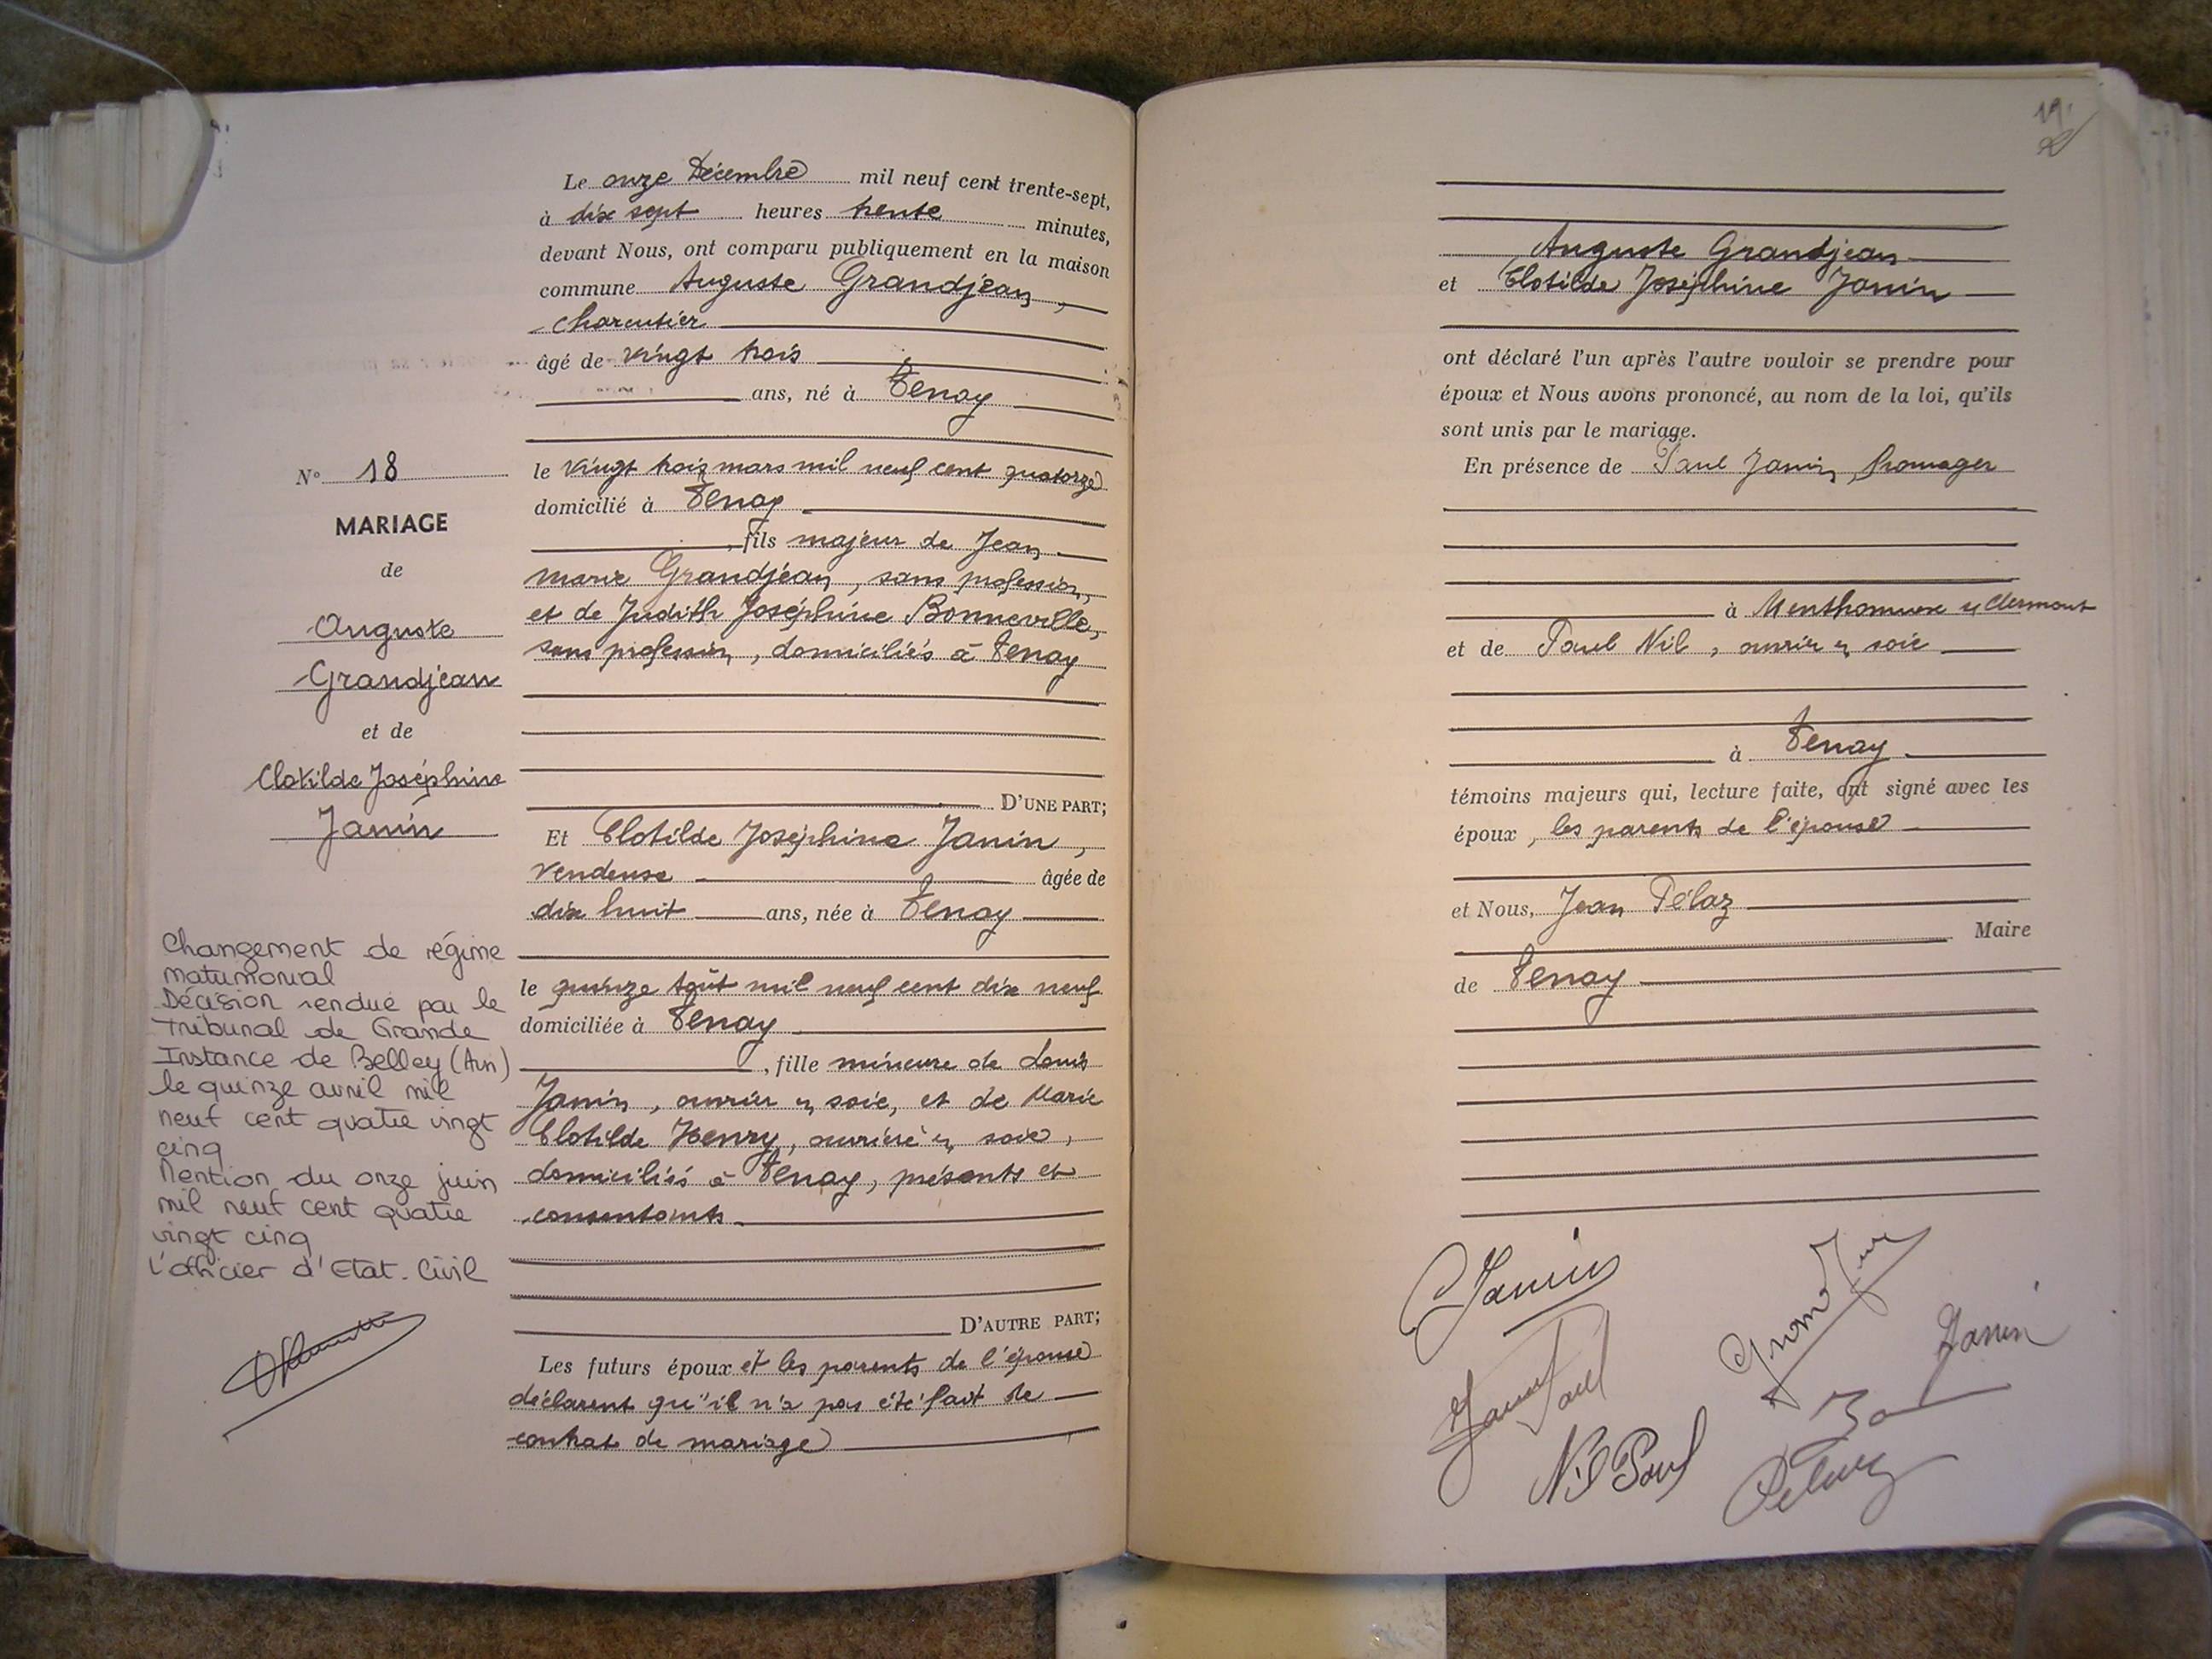 Le onze Décembre mil neuf cent trente-sept,
à dix sept heures trente minutes,
devant Nous, ont comparu publiquement en la maison
commune Auguste Grandjean,
charcutier
âgé de vingt trois
ans, né à Tenay
le vingt trois mars mil neuf cent quatorze
domicilié à Tenay
, fils majeur de Jean
marie Grandjean, sans profession,
et de Judith Joséphine Bonneville,
sans profession, domiciliés à Tenay
D'UNE PART;
Et Clotilde Joséphine Janin,
vendeuse âgée de
dix huit ans, née à Tenay
le quinze Août mil neuf cent dix neuf
domiciliée à Tenay
, fille mineure de Louis
Janin, ouvrier en soie, et de Marie
Clotilde Henry, ouvrière en soie,
domiciliés à Tenay, présents et
consentants
D'AUTRE PART;
Les futurs époux et les parents de l'épouse
déclarent qu'il n'a pas été fait de
contrat de mariage
N° 18
MARIAGE
de
Auguste
Grandjean
et de
Clotilde Joséphine
Janin
Changement de régime
matrimonial
Décision rendue par le
Tribunal de Grande
Instance de Belley (Ain)
le quinze avril mil
neuf cent quatre vingt
cinq
Mention du onze juin
mil neuf cent quatre
vingt cinq
L'officier d'Etat. Civil
19
Auguste Grandjean
et Clotilde Joséphine Janin
ont déclaré l'un après l'autre vouloir se prendre pour
époux et Nous avons prononcé, au nom de la loi, qu'ils
sont unis par le mariage.
En présence de Paul Janin, fromager
à Menthonnex s/ Clermont
et de Paul Nil, ouvrier en soie
à Tenay
témoins majeurs qui, lecture faite, ont signé avec les
époux, les parents de l'épouse
et Nous, Jean Pélaz
Maire
de Tenay
C Janin
Janin Paul
Janin
Nil Paul
Pelaz